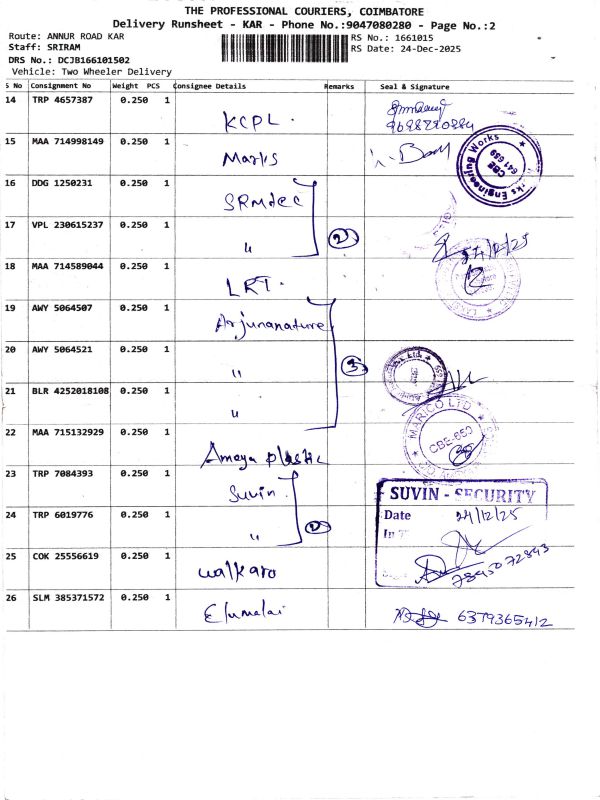 THE PROFESSIONAL COURIERS, COIMBATORE
Delivery Runsheet - KAR - Phone No.:9047080280 - Page No.:2
Route: ANNUR ROAD KAR
RS No.: 1661015
Staff: SRIRAM
RS Date: 24-Dec-2025
DRS No.: DCJB166101502
Vehicle: Two Wheeler Delivery
S No Consignment No Weight PCS Consignee Details Remarks Seal & Signature
14 TRP 4657387 0.250 1 KCPL.
15 MAA 714998149 0.250 1 Marks
CBE 641 659
16 DDG 1250231 0.250 1 SRMdec
17 VPL 230615237 0.250 1 " 2 24/12/25
18 MAA 714589044 0.250 1 LRT.
19 AWY 5064507 0.250 1 Arjunanature
20 AWY 5064521 0.250 1 " 3
21 BLR 4252018108 0.250 1 "
MARICO LTD
CBE-659
22 MAA 715132929 0.250 1 Amaya plastic
23 TRP 7084393 0.250 1 Suvin
SUVIN - SECURITY
Date 24/12/25
24 TRP 6019776 0.250 1 " 2
In T
25 COK 25556619 0.250 1 walkaro
78450 72843
26 SLM 385371572 0.250 1 Elumalai
6379365412